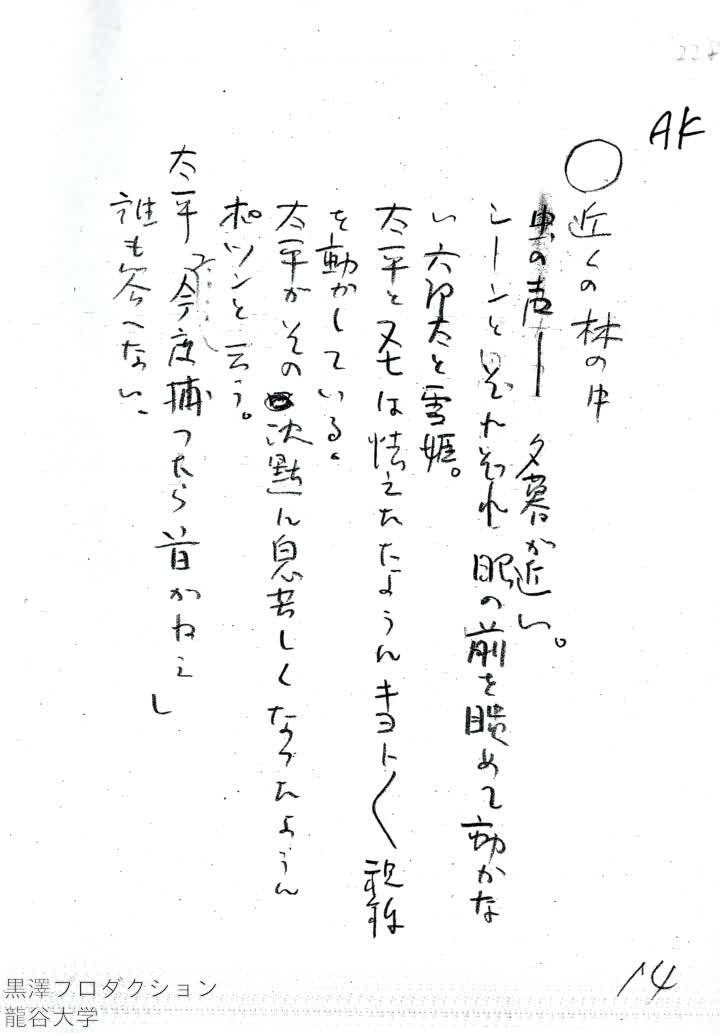 AK
○近くの林の中
虫の声ーー 夕暮が近い。
シーンと黙りそれぞれ眼の前を瞶めて動かな
い六郎太と雪姫。
太平と又七は怯えたようにキョトキョト視線
を動かしている。
太平がその沈黙に息苦しくなったように
ポツンと云う。
太平「今度捕ったら首がねえ」
誰も答へない、
14
黒澤プロダクション
龍谷大学